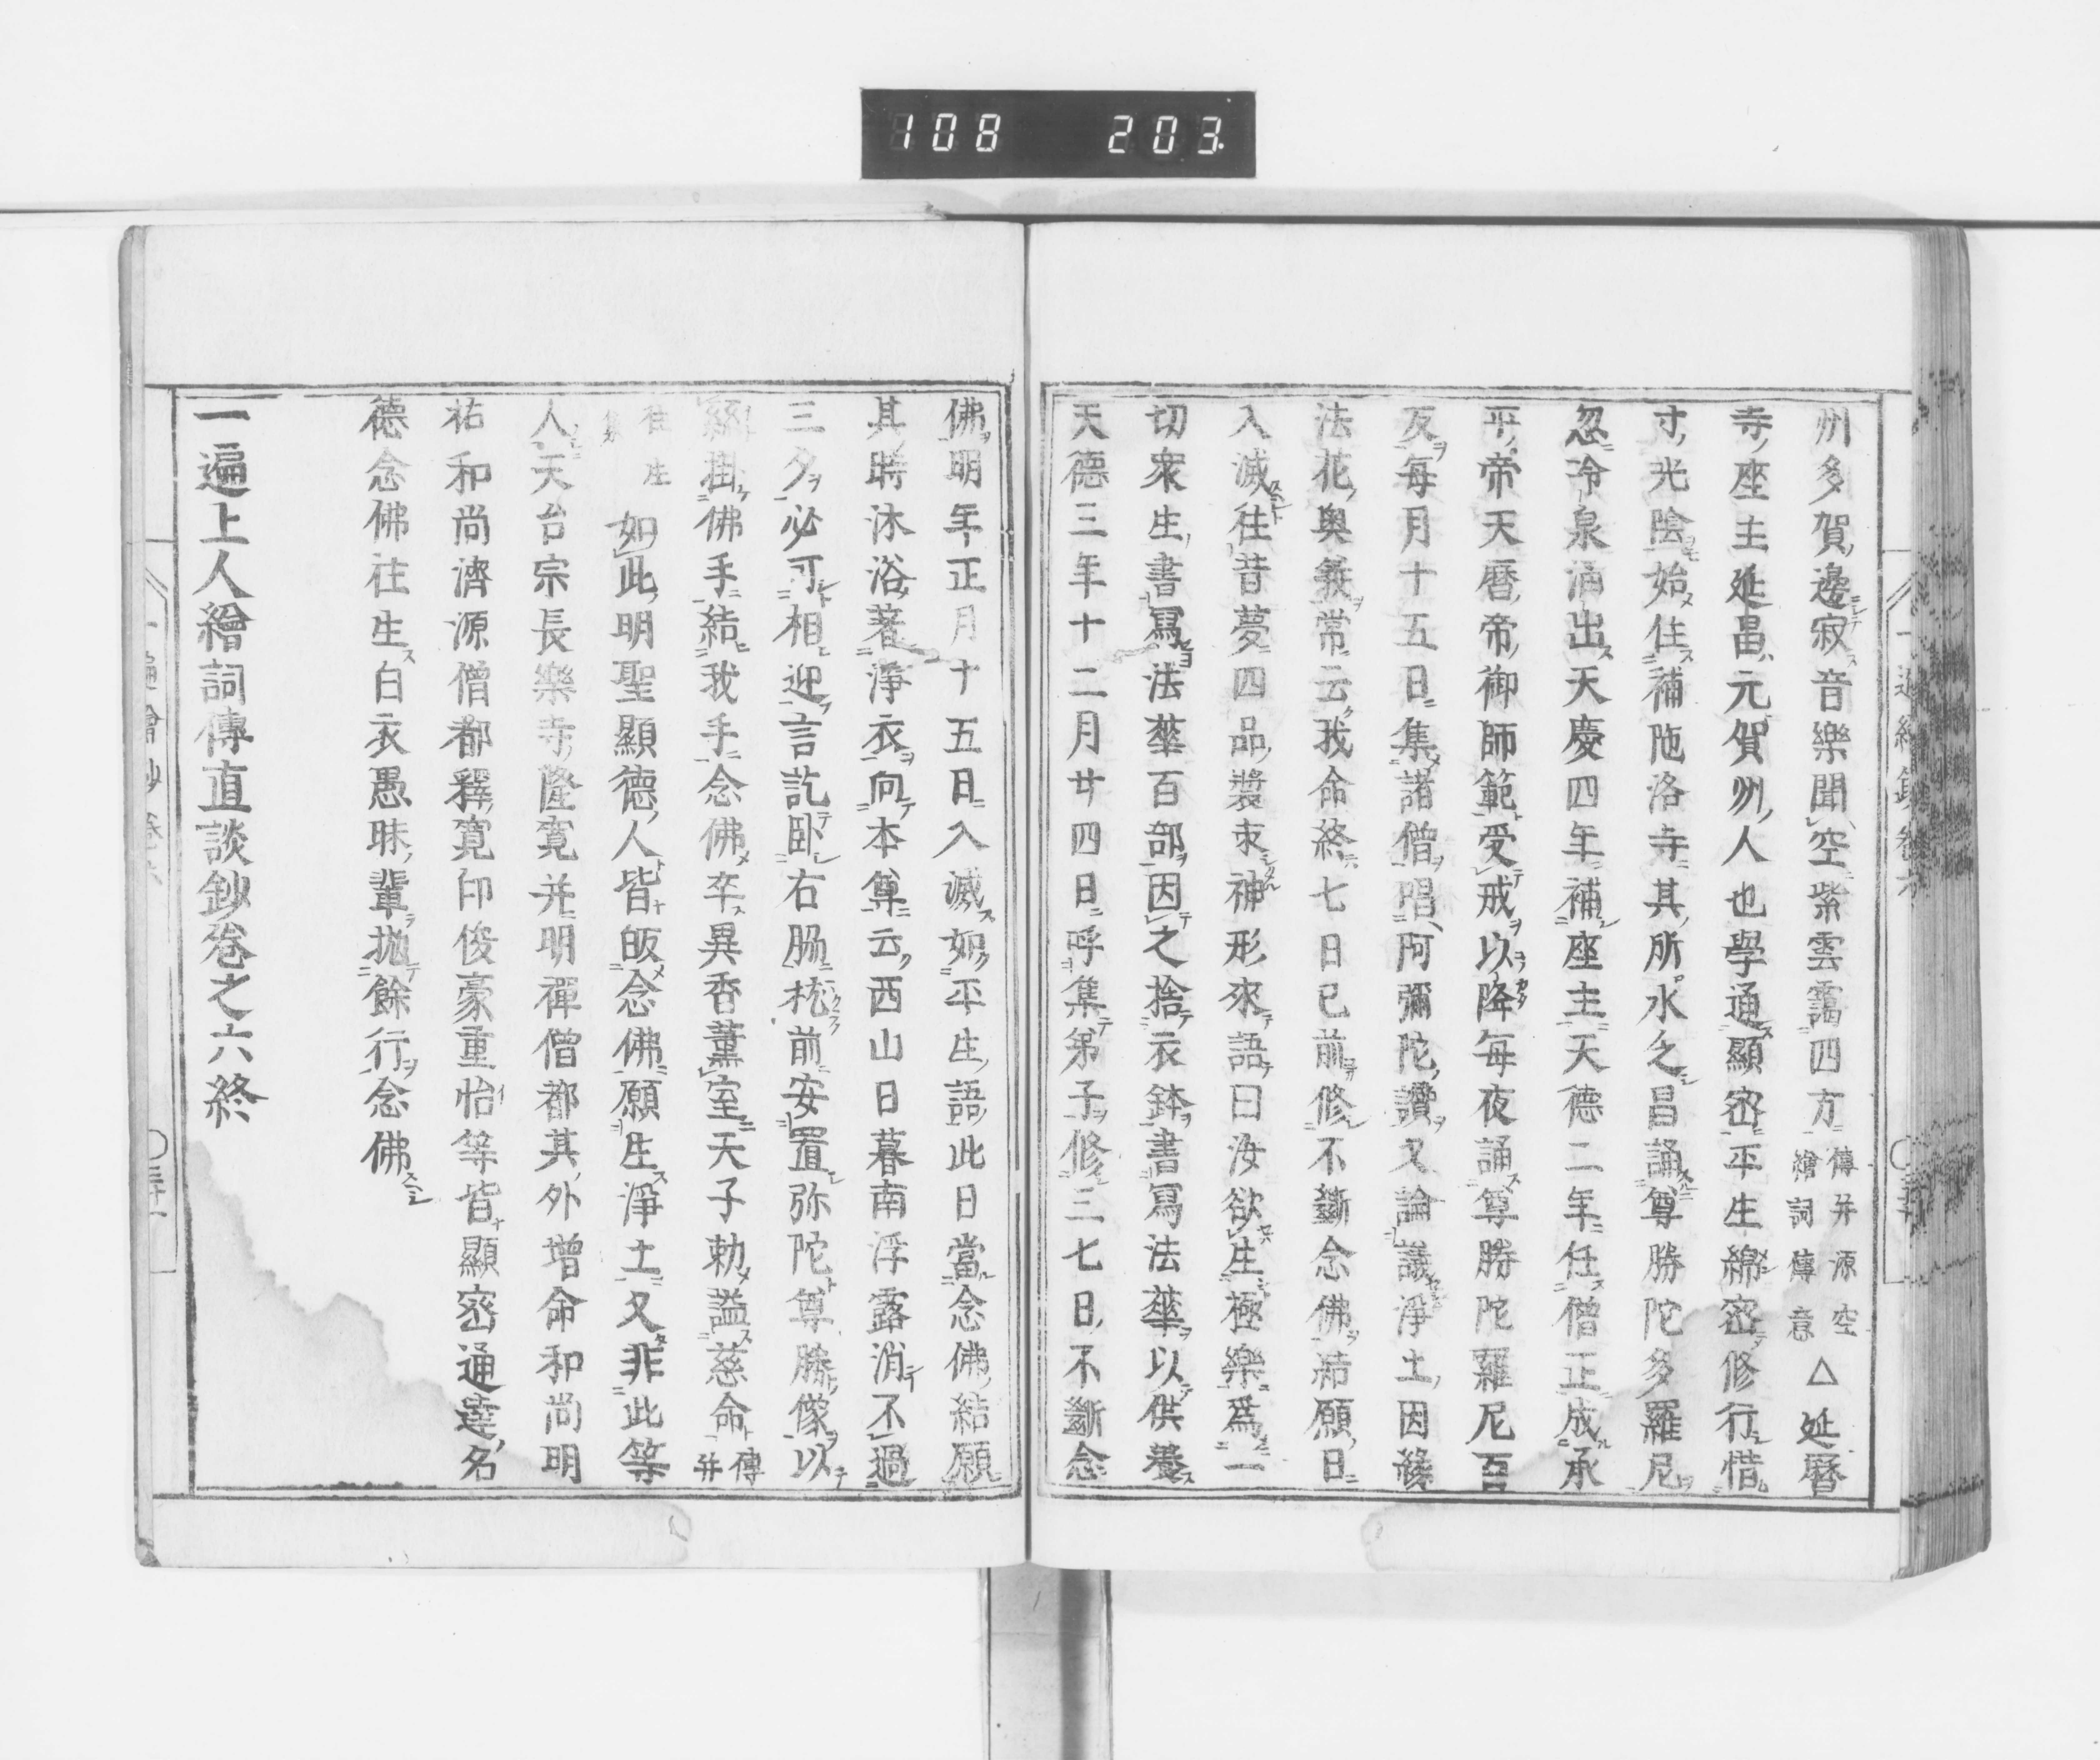 108 203
州多賀邊寂音樂聞空紫雲靄四方傳并源空繪詞傳意△延曆
寺座主延昌元賀州人也學通顯密平生綿密修行惜
寸光陰始住補陁洛寺其所水乏昌誦尊勝陀多羅尼
忽冷泉涌出天慶四年補座主天德二年任僧正成承
平帝天曆帝御師範受戒以降每夜誦尊勝陀羅尼百
反每月十五日集諸僧唱阿彌陀讚又論議淨土因緣
法花奧義常云我命終七日已前修不斷念佛結願日
入滅往昔夢四品裳束神形來語曰汝欲生極樂爲一
切衆生書寫法華百部因之捨衣鉢書寫法華以供養
天德三年十二月廿四日呼集弟子修三七日不斷念
佛明年正月十五日入滅如平生語此日當念佛結願
其時沐浴著淨衣向本尊云西山日暮南浮露消不過
三夕必可相迎言訖卧右脇枕前安置弥陀尊勝像以
絲掛佛手結我手念佛卒異香薰室天子勅諡慈命傳并
往生集如此明聖顯德人皆皈念佛願生淨土又非此等
人天台宗長樂寺隆寬并明禪僧都其外增命和尚明
祐和尚濟源僧都釋寬印俊豪重怡等皆顯密通達名
德念佛往生白衣愚昧輩拋餘行念佛
一遍上人繪詞傳直談鈔卷之六終